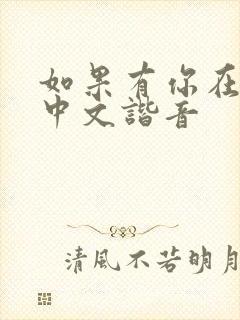 如果有你在
中文諧音
清風不若明月